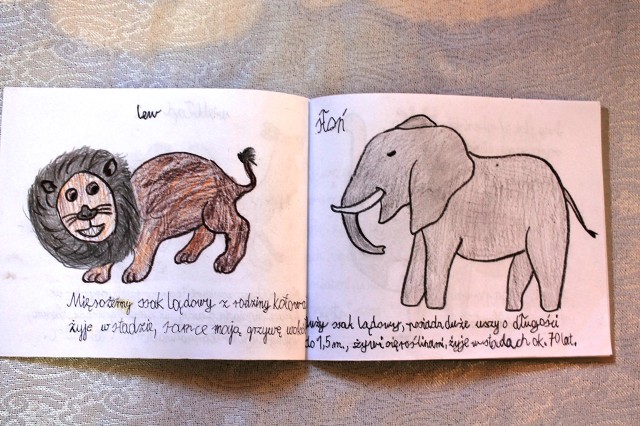 lew
Mięsożerny ssak lądowy z rodziny kotowa
żyje w stadzie, samce mają grzywę wokół
słoń
duży ssak lądowy, posiada duże uszy o długości
do 1,5 m., żywi się roślinami, żyje w stadach ok. 70 lat.